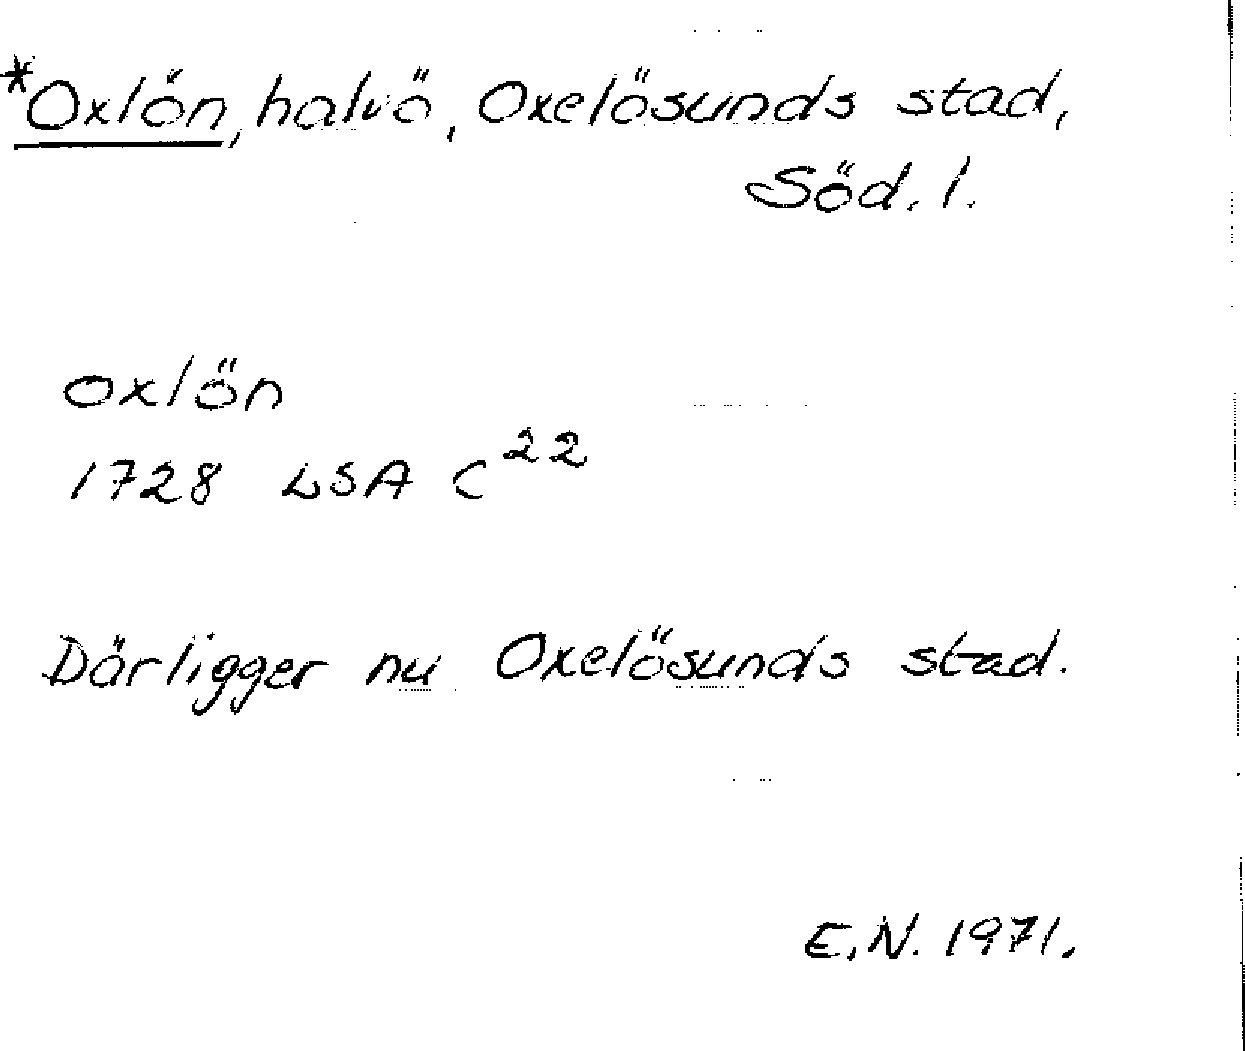 *Oxlön, halvö, Oxelösunds stad,
Söd. l.
oxlön
1728 LSA C²²
Där ligger nu Oxelösunds stad.
E.N. 1971.